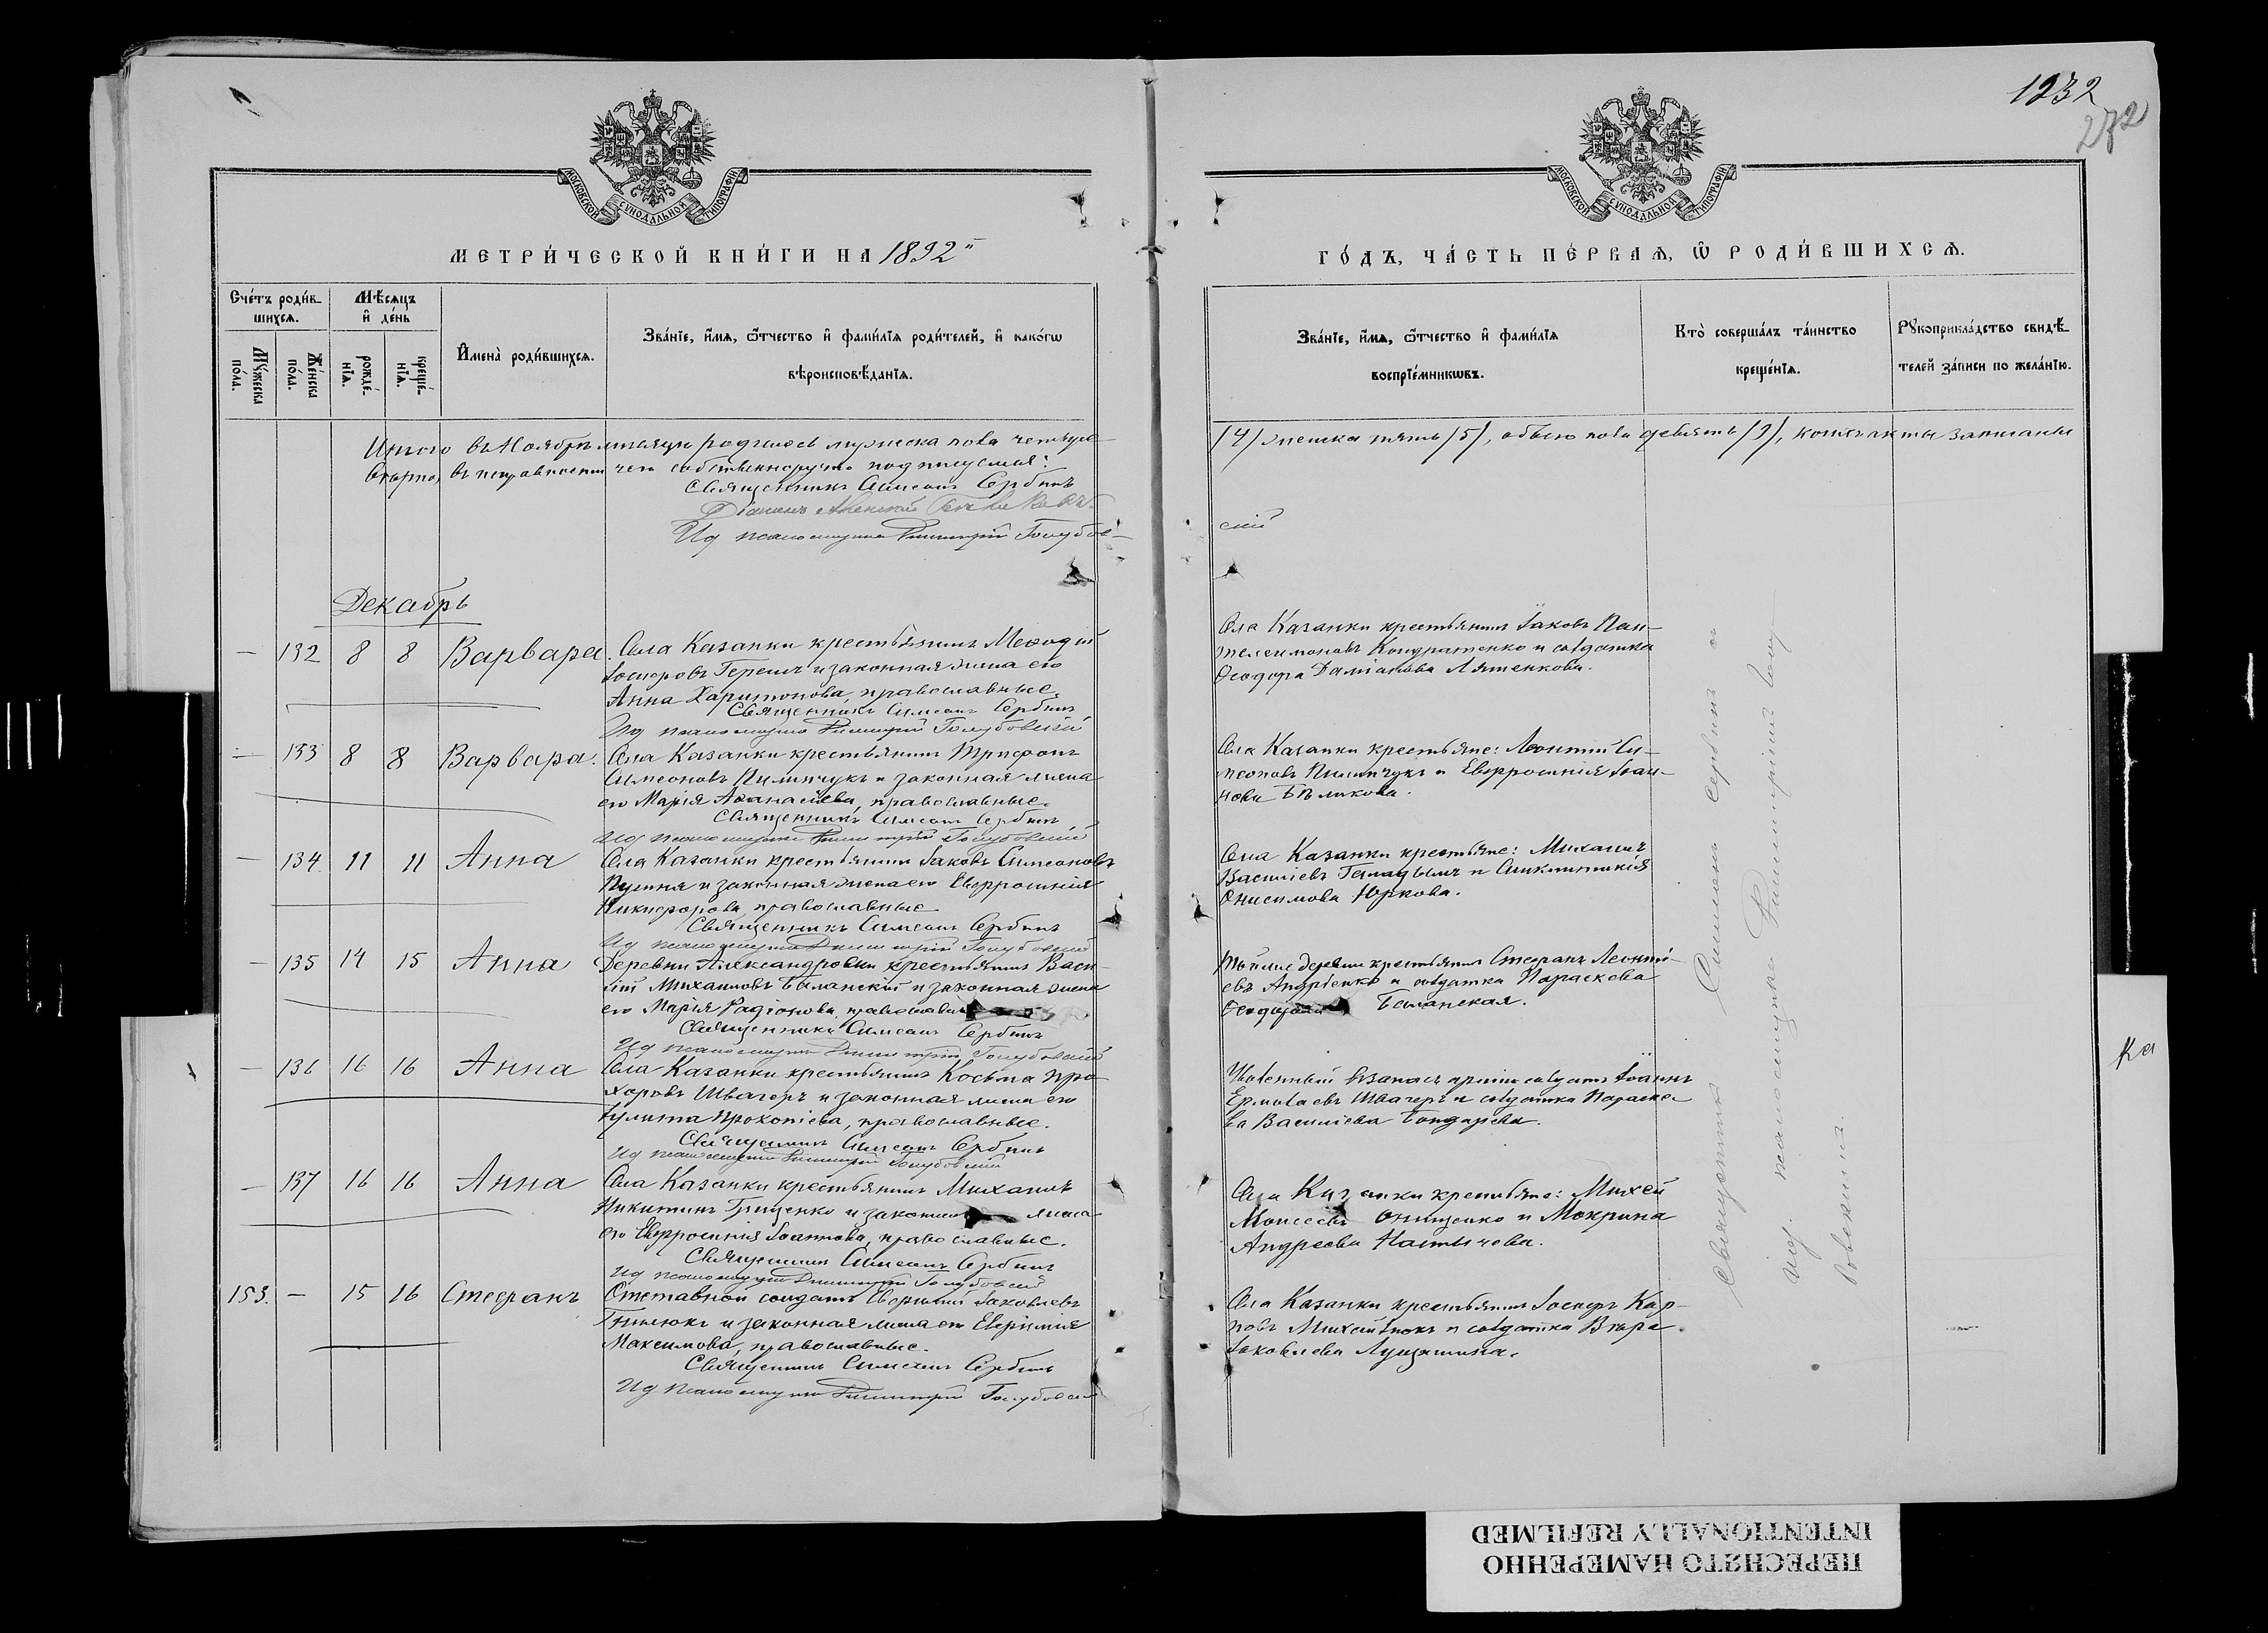 1232
272
МОСКОВСКОЙ СѴНОДАЛЬНОЙ ТИПОГРАФІИ
МОСКОВСКОЙ СѴНОДАЛЬНОЙ ТИПОГРАФІИ
МЕТРИ́ЧЕСКОЙ КНИ́ГИ НА 1892
ГО́ДЪ, ЧА́СТЬ ПЕ́РВАѦ, Ѿ РОДИ́ВШИХСѦ.
Сче́тъ роди́в-
шихсѧ.
Мѣ́сѧцъ
и҆ де́нь
Мꙋ́жеска
по́ла.
Же́нска
по́ла.
рожде́-
нїѧ.
креще́-
нїѧ.
И҆мена̀ роди́вшихсѧ.
Зва́нїе, и҆́мѧ, ѻ҆́тчество и҆ фами́лїѧ роди́телей, и҆ како́гѡ
вѣроисповѣ́данїѧ.
Зва́нїе, и҆́мѧ, ѻ҆́тчество и҆ фами́лїѧ
воспрїе́мникѡвъ.
Кто̀ соверша́лъ та́инство
креще́нїѧ.
Рꙋкоприкла́дство свидѣ́-
телей за́писи по жела́нїю.
Итого въ Ноябрѣ мѣсяцѣ родилось мужеска пола четыре
/4/ женска пять /5/, обоего пола девять /9/, кои акты записаны
вѣрно, въ исправности чего собственноручно подписуемся:
Священникъ Симеонъ Сербинъ
Діаконъ
Ид псаломщика Димитрій Голубов-
скій
Декабрь
— 132 8 8 Варвара. Села Казанки крестьянинъ Меѳодій
Іосифовъ Герешъ и законная жена его
Анна Харитонова, православные.
Священникъ Симеонъ Сербинъ
Ид псаломщика Димитрій Голубовскій
Села Казанки крестьянинъ Іаковъ Пан-
телеимоновъ Кондратенко и солдатка
Ѳеодора Даміанова Лятенкова.
— 133 8 8 Варвара. Села Казанки крестьянинъ Трифонъ
Симеоновъ Пилипчукъ и законная жена
его Марія Аѳанасіева, православные.
Священникъ Симеонъ Сербинъ
Ид псаломщика Димитрій Голубовскій
Села Казанки крестьяне: Леонтій Си-
меоновъ Пилипчукъ и Евфросинія Іоан-
нова Бѣликова.
— 134 11 11 Анна Села Казанки крестьянинъ Іаковъ Симеоновъ
и законная жена его Евфросинія
Никифорова, православные
Священникъ Симеонъ Сербинъ
Ид псаломщика Димитрій Голубовскій
Села Казанки крестьяне: Михаилъ
Василіевъ и Синклитикія
Онисимова Юркова.
— 135 14 15 Анна Деревни Александровки крестьянинъ Васи-
лій Михаиловъ Баланскій и законная жена
его Марія Радіонова, православн
Священникъ Симеонъ Сербинъ
Ид псаломщика Димитрій Голубовскій
Той же деревни крестьянинъ Стефанъ Леонті-
евъ Андріенко и солдатка Параскева
Баланская.
— 136 16 16 Анна Села Казанки крестьянинъ Косьма Про-
хоровъ Швагеръ и законная жена его
Іулита Прокопіева, православные.
Священникъ Симеонъ Сербинъ
Ид псаломщика Димитрій Голубовскій
солдатъ Іоаннъ
Ермолаевъ Швагеръ и солдатка Параске-
ва Василіева Бондарева.
— 137 16 16 Анна Села Казанки крестьянинъ Михаилъ
Никитинъ Гриценко и законная жена
его Евфросинія Іоаннова, православные.
Священникъ Симеонъ Сербинъ
Ид псаломщика Димитрій Голубовскій
Села Казанки крестьяне: Михей
Моисеевъ Онищенко и Мокрина
Андреева
153. — 15 16 Стефанъ Отставной солдатъ Евфимій Іаковлевъ
Гнилюкъ и законная жена его Евфимія
Максимова, православные.
Священникъ Симеонъ Сербинъ
Ид псаломщика Димитрій Голубовскій
Села Казанки крестьянинъ Іосифъ Кар-
повъ Михайлюкъ и солдатка Вѣра
Іаковлева
Священникъ Симеонъ Сербинъ и
ид. псаломщика Димитрій Голу-
бовскій.
Ка
ПЕРЕСНЯТО НАМЕРЕННО
INTENTIONALLY REFILMED